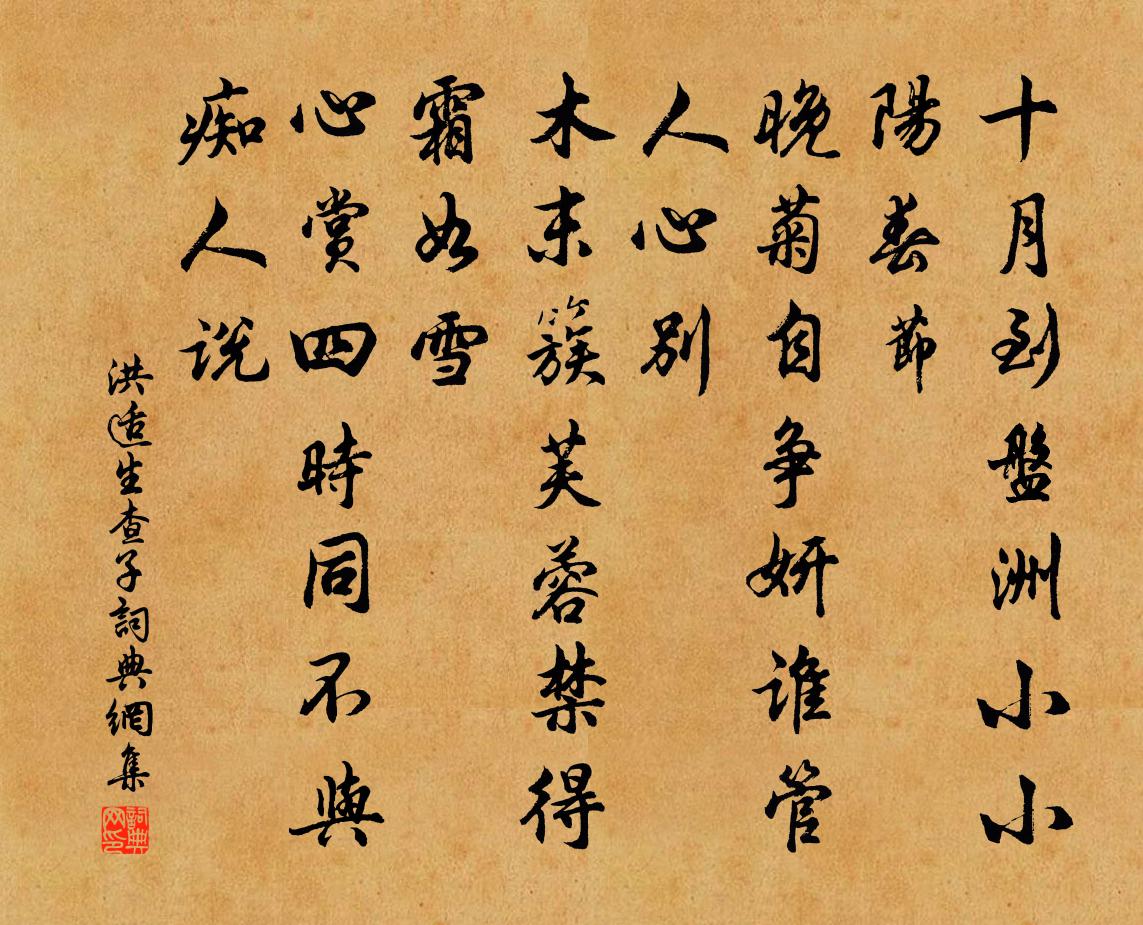 十月到盤洲小小
陽春節
晚菊自爭妍誰管
人心別
木末簇芙蓉禁得
霜如雪
心賞四時同不與
痴人說
洪适生查子詞典網集
詞典網印